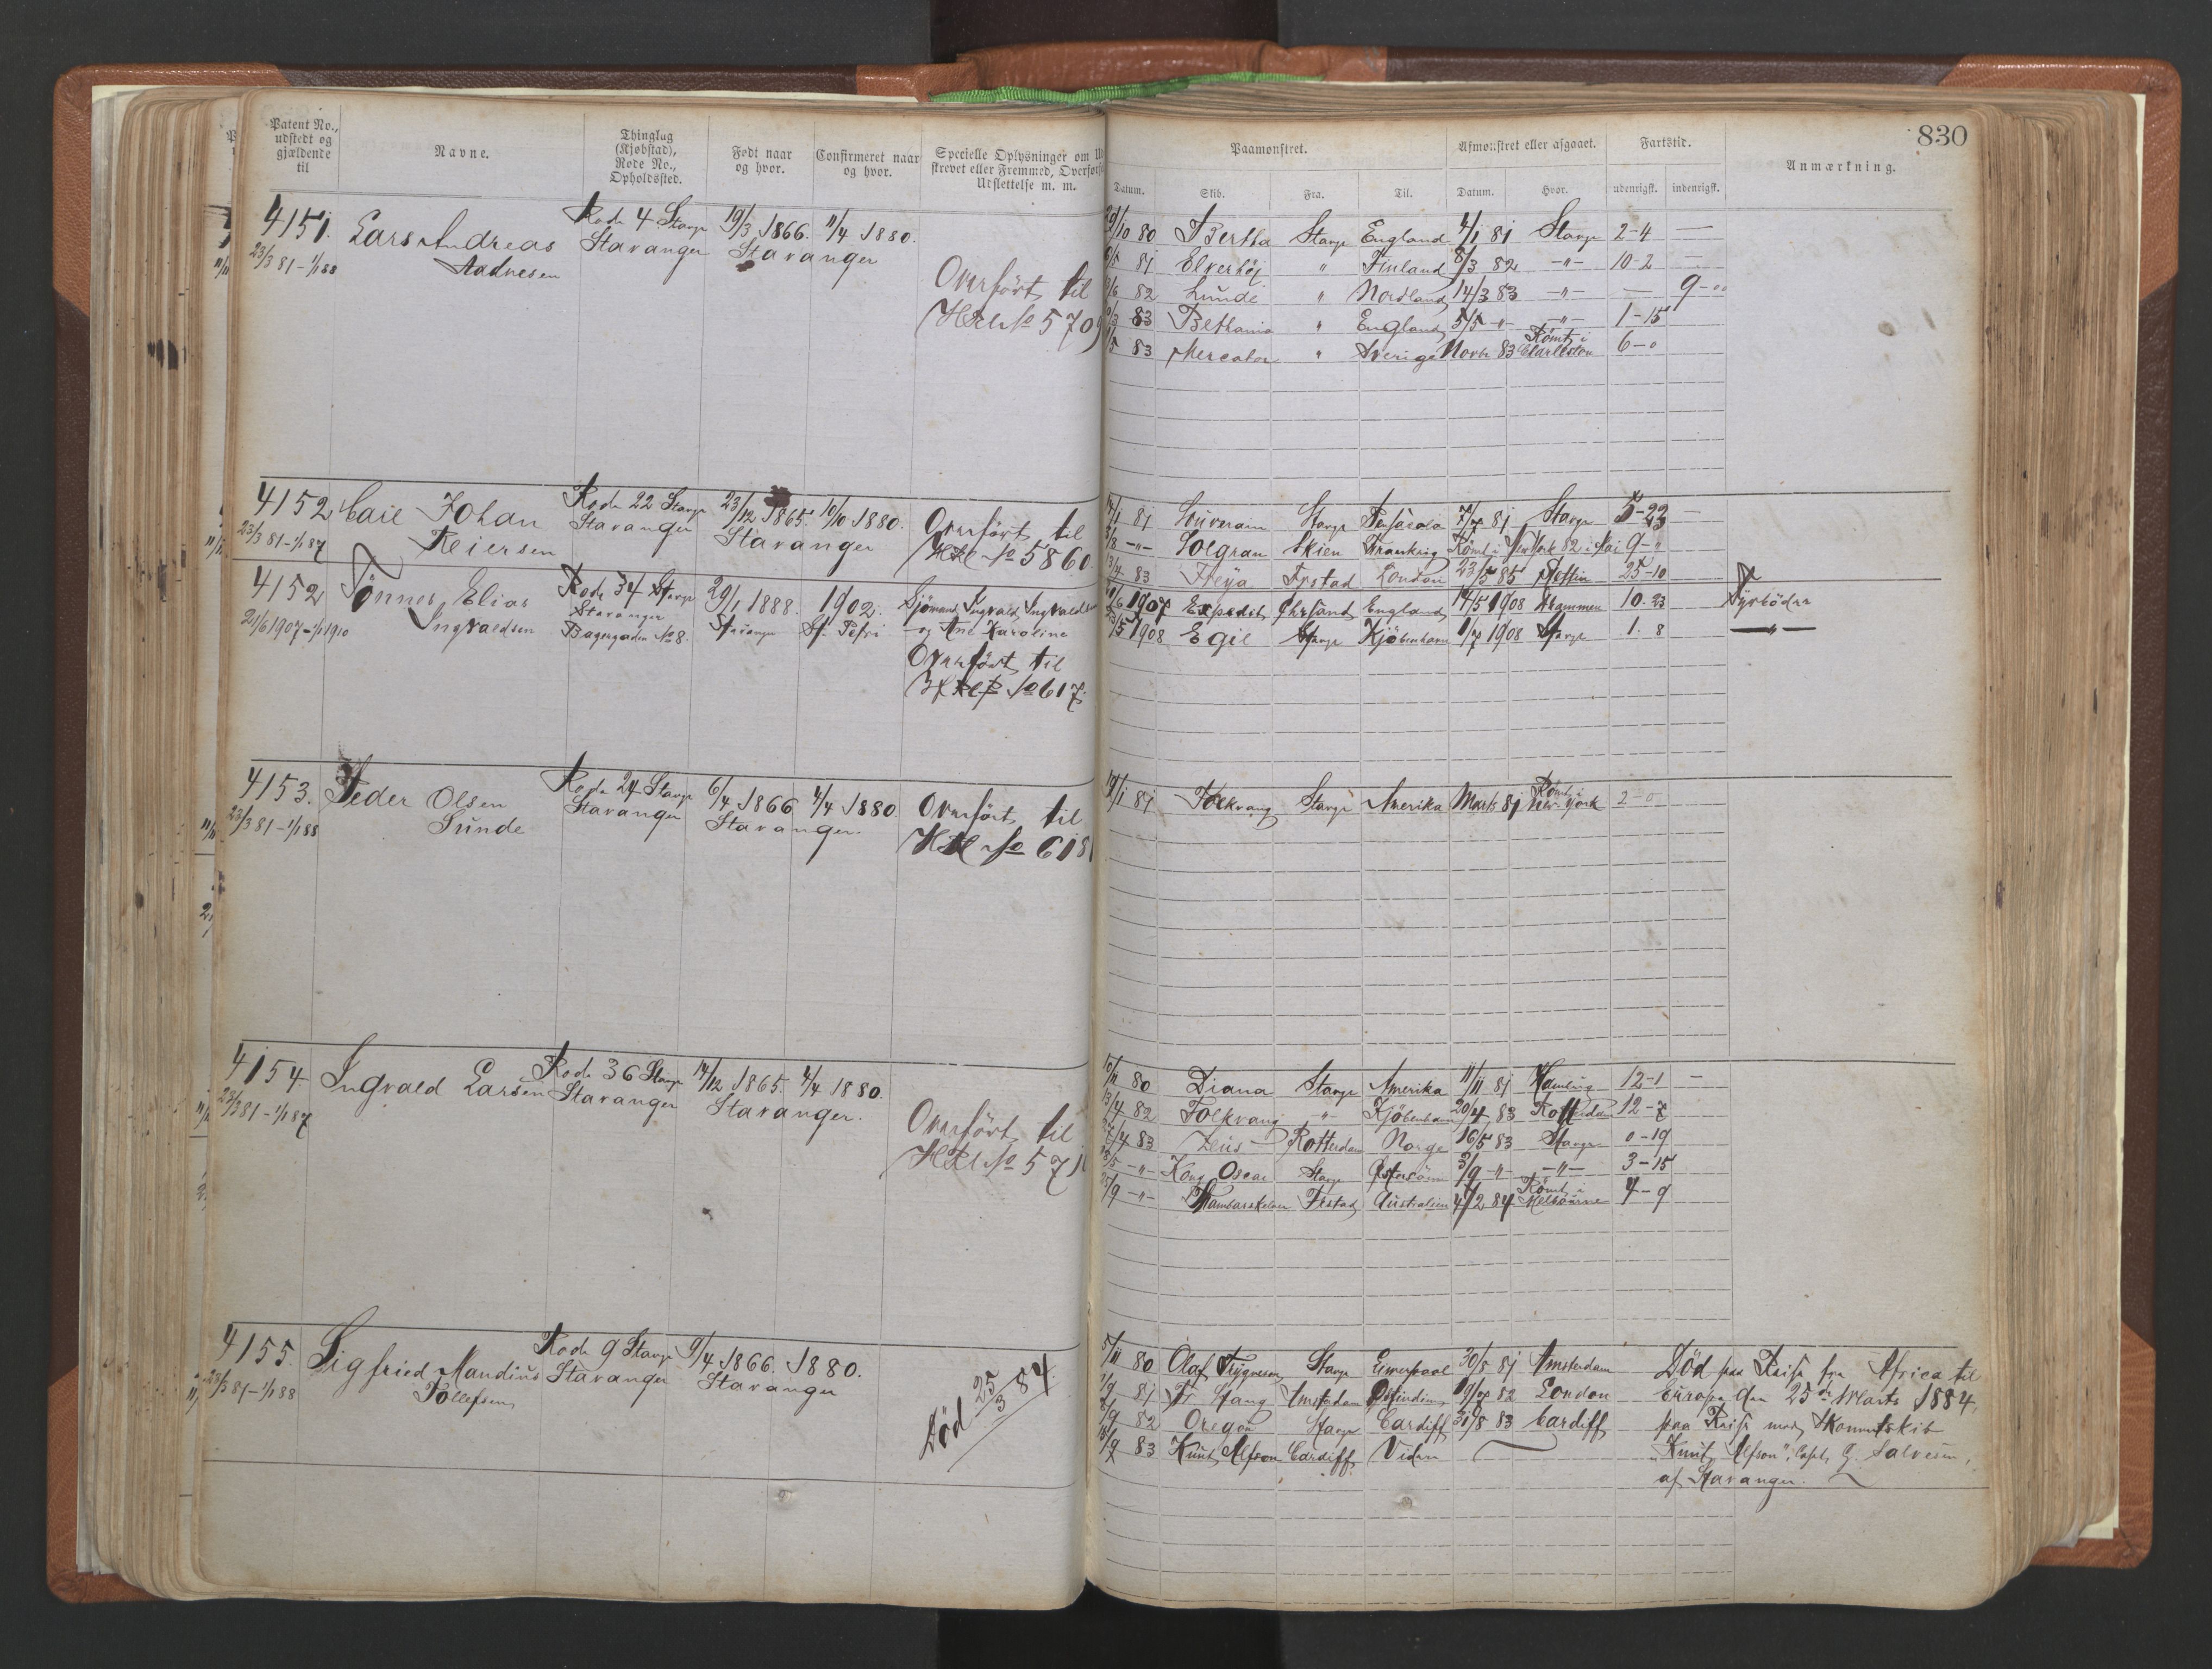 830
Patent No., udstedt og gjældende til
Navne.
Thinglag (Kjøbstad), Rode No., Opholdssted.
Født naar og hvor.
Confirmeret naar og hvor.
Specielle Oplysninger om
skrevet eller Fremmed, Overførs
Udslettelse m. m.
Paamønstret.
Afmønstret eller afgaaet.
Fartstid.
Anmærkning.
Datum. Skib. Fra. Til. Datum. Hvor. udenrigsk. indenrigsk.
4151. Lars Andreas Rode 4 Stavgr 19/3 1866. 11/4 1880.
23/3 81 - 1/1 88 Aadnesen Stavanger Stavanger
Overført til
HRl No 5709
29/10 80 Bertha Stavgr England 4/1 81 Stavgr 2-4 —
/5 81 Elverhöj " Finland 8/3 82 -"- 10-2 —
/6 82 Lunde " Nordland 14/3 83 -"- — 9-"
/3 83 Bethania " England 5/5 -"- -"- 1-15
/5 83 Mercator " Sverige Novbr 83 Römt i Charleston 6-0
4152 Carl Johan Rode 22 Stavgr 23/12 1865. 10/10 1880.
23/3 81 - 1/1 87 Reiersen Stavanger Stavanger
Overført til
HRl No 5860.
/1 81 Souverain Stavgr Pensacola 7/7 81 Stavgr 5-23 —
/8 -"- Solgran Skien Frankrig Römt i New York 82 i Mai 9-"
13/4 83 Freya Frstad London 23/5 85 Stettin 25-10
4152 Tönnes Elias Rode 34 Stavgr 29/1 1888. 1902.
21/6 1907 - 1/1 1910 Ingvaldsen Stavanger Stavanger St. Petri
Bagergaden No 8.
Sjömand Ingvald Ingvaldsen
og Ane Karoline
Overført til
No 617
/6 1907 Expedit Chrsand England 14/5 1908 Drammen 10. 23 Fyrböder
/5 1908 Egil Stavgr Kjöbenhavn 1/7 1908 Stavgr 1. 8 —"—
4153. Peder Olsen Rode 24 Stavgr 6/4 1866 4/4 1880.
23/3 81 - 1/1 88 Sunde Stavanger Stavanger.
Overført til
HRl No 618
19/1 81 Folkvang Stavgr Amerika Marts 81 Römt i New York 2-0
4154 Ingvald Larsen Rode 36 Stavgr 14/12 1865. 4/4 1880.
23/3 81 - 1/1 87 Stavanger Stavanger.
Overført til
HRl No 571
10/11 80 Diana Stavgr Amerika 11/11 81 Hamburg 12-1 —
13/4 82 Folkvang -"- Kjöbenhavn 20/4 83 Rotterdam 12-7
27/4 83 Zeus Rotterdam Norge 16/5 83 Stavgr 0-19
/5 -"- Kong Oscar Stavgr Östersöen 3/9 -"- -"- 3-15
25/9 -"- Thambarskelver Frstad Australien 4/2 84 Römt i Melbourne 4-9
4155. Sigfried Mandius Rode 9 Stavgr 9/4 1866. 1880.
23/3 81 - 1/1 88 Tollefsen Stavanger Stavanger
Död 25/3 84.
5/11 80 Olaf Trygveson Stavgr Liverpool 30/8 81 Amsterdam Död paa Reise fra Africa til
/9 81 Fr Stang Amsterdam Ostindien 19/7 82 London Europa den 25de Marts 1884,
/9 82 Oregon Stavgr Cardiff 31/8 83 Cardiff paa Reise med Skonnertskib
18/9 83 Knut Alfson Cardiff Viden „Knut Alfson", Capt. G. Salvesen,
af Stavanger.